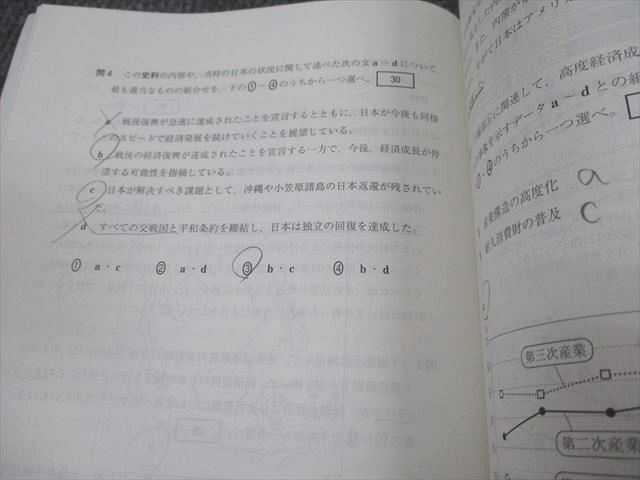 問4 この史料の内容や,当時の日本の状況に関して述べた次の文a～dについて,
最も適当なものの組合せを,下の①～④のうちから一つ選べ。 30
a 戦後復興が急速に達成されたことを宣言するとともに,日本が今後も同様
のスピードで経済発展を続けていくことを展望している。
b 戦後の経済復興が達成されたことを宣言する一方で,今後,経済成長が停
滞する可能性を指摘している。
c 日本が解決すべき課題として,沖縄や小笠原諸島の日本返還が残されてい
た。
d すべての交戦国と平和条約を締結し,日本は独立の回復を達成した。
① a・c ② a・d ③ b・c ④ b・d
また,内閣が
がて日本はアメリカ
に関連して,高度経済成
を示すデータa～dとの組
～④のうちから一つ選べ。
産業構造の高度化 a
耐久消費財の普及 c
第三次産業
第二次産業